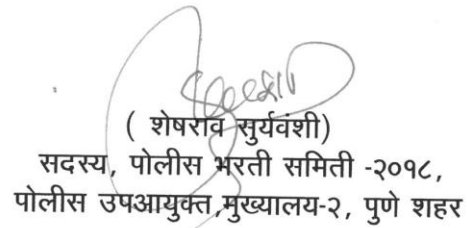 ( शेषराव सुर्यवंशी)
सदस्य, पोलीस भरती समिती -२०१८,
पोलीस उपआयुक्त,मुख्यालय-२, पुणे शहर